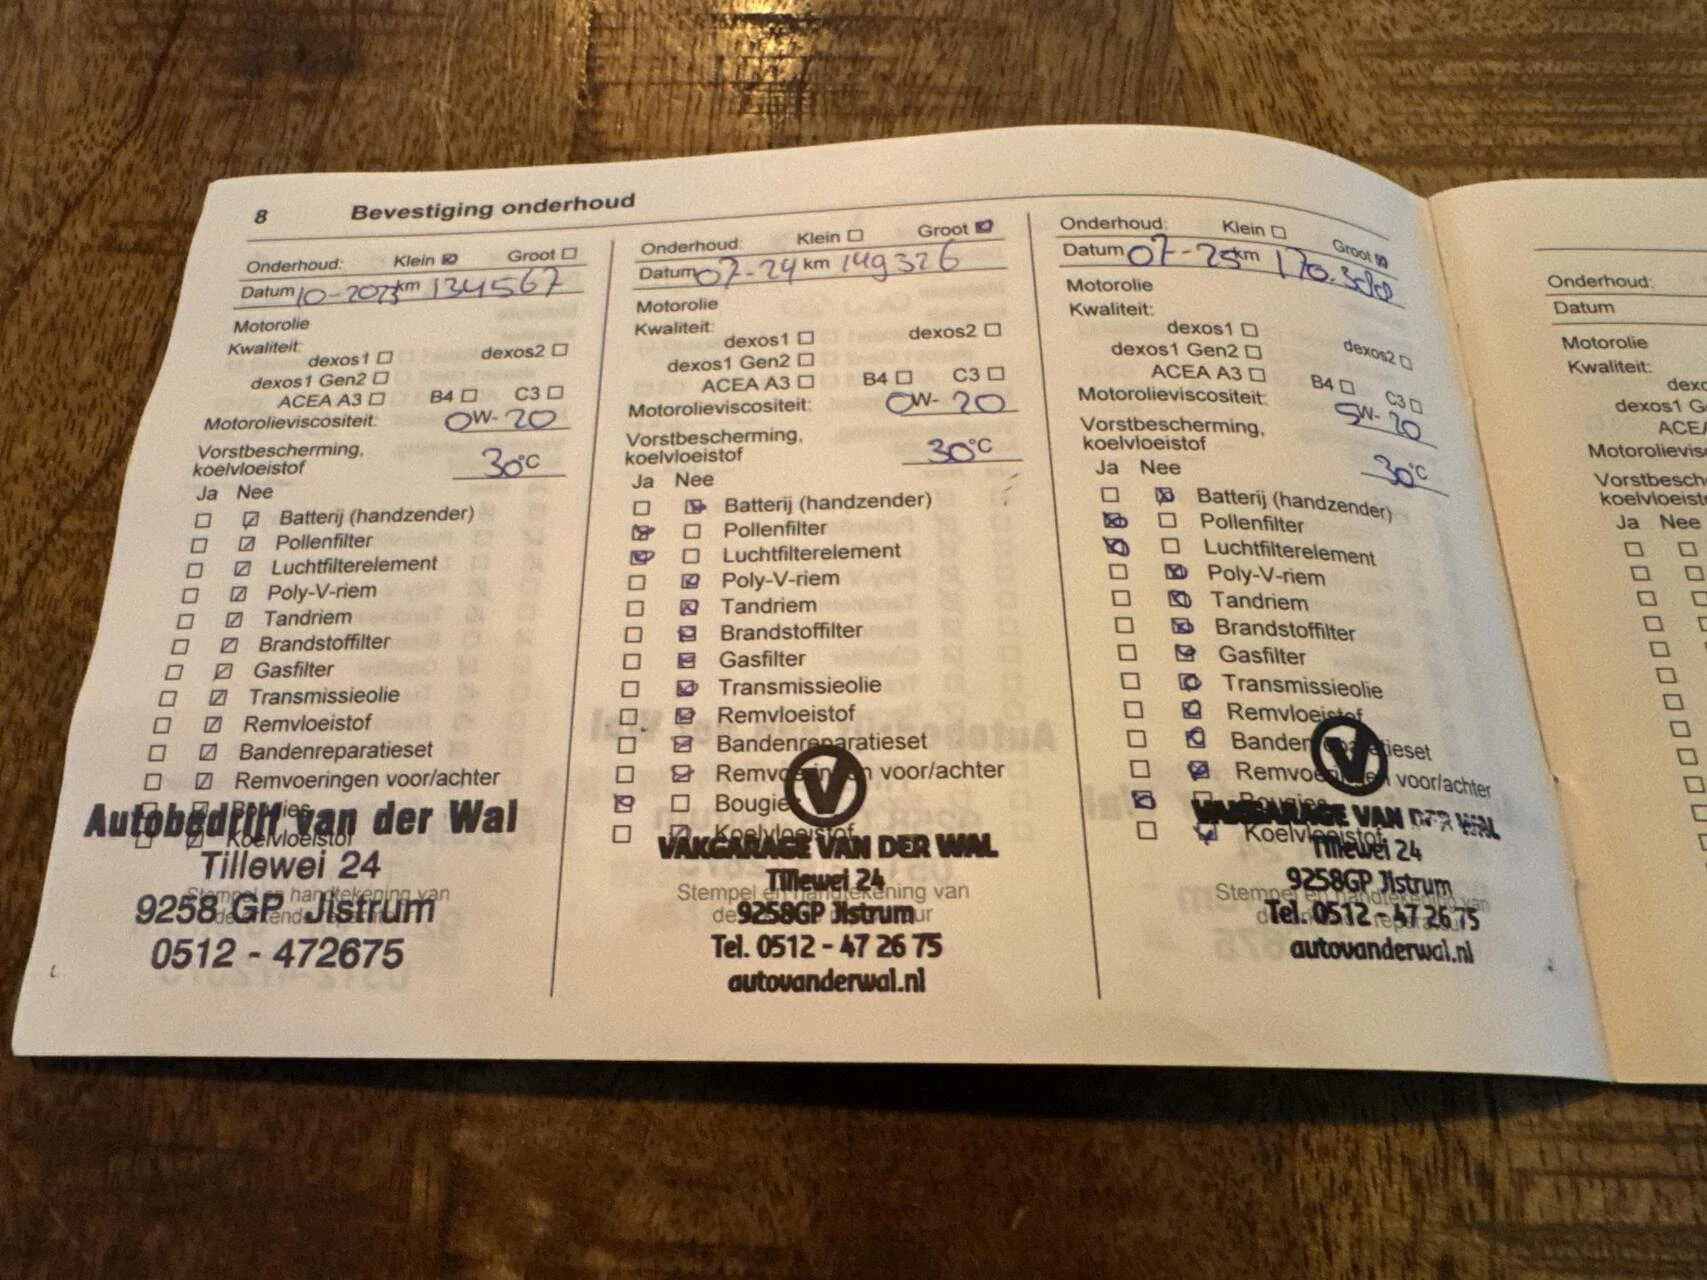 8 Bevestiging onderhoud
Onderhoud: Klein ☒ Groot ☐
Datum 10-2023 km 134567
Motorolie
Kwaliteit:
dexos1 ☐ dexos2 ☐
dexos1 Gen2 ☐
ACEA A3 ☐ B4 ☐ C3 ☐
Motorolieviscositeit: 0W-20
Vorstbescherming,
koelvloeistof 30°C
Ja Nee
☐ ☒ Batterij (handzender)
☐ ☒ Pollenfilter
☐ ☒ Luchtfilterelement
☐ ☒ Poly-V-riem
☐ ☒ Tandriem
☐ ☒ Brandstoffilter
☐ ☒ Gasfilter
☐ ☒ Transmissieolie
☐ ☒ Remvloeistof
☐ ☒ Bandenreparatieset
☐ ☒ Remvoeringen voor/achter
☐ ☒ Bougies
☐ ☒ Koelvloeistof
Autobedrijf van der Wal
Tillewei 24
Stempel en handtekening van
9258 GP Jistrum
0512 - 472675
Onderhoud: Klein ☐ Groot ☒
Datum 07-24 km 149326
Motorolie
Kwaliteit:
dexos1 ☐ dexos2 ☐
dexos1 Gen2 ☐
ACEA A3 ☐ B4 ☐ C3 ☐
Motorolieviscositeit: 0W-20
Vorstbescherming,
koelvloeistof 30°C
Ja Nee
☐ ☒ Batterij (handzender)
☒ ☐ Pollenfilter
☒ ☐ Luchtfilterelement
☐ ☒ Poly-V-riem
☐ ☒ Tandriem
☐ ☒ Brandstoffilter
☐ ☒ Gasfilter
☐ ☒ Transmissieolie
☐ ☒ Remvloeistof
☐ ☒ Bandenreparatieset
☐ ☒ Remvoeringen voor/achter
☒ ☐ Bougies
☐ ☒ Koelvloeistof
V
VAKGARAGE VAN DER WAL
Tillewei 24
Stempel en handtekening van
9258GP Jistrum
Tel. 0512 - 47 26 75
autovanderwal.nl
Onderhoud: Klein ☐ Groot ☒
Datum 07-25 km
Motorolie
Kwaliteit:
dexos1 ☐ dexos2 ☐
dexos1 Gen2 ☐
ACEA A3 ☐ B4 ☐ C3 ☐
Motorolieviscositeit: 5W-20
Vorstbescherming,
koelvloeistof 30°C
Ja Nee
☐ ☒ Batterij (handzender)
☒ ☐ Pollenfilter
☒ ☐ Luchtfilterelement
☐ ☒ Poly-V-riem
☐ ☒ Tandriem
☐ ☒ Brandstoffilter
☐ ☒ Gasfilter
☐ ☒ Transmissieolie
☐ ☒ Remvloeistof
☐ ☒ Bandenreparatieset
☐ ☒ Remvoeringen voor/achter
☒ ☐ Bougies
☐ ☒ Koelvloeistof
V
VAKGARAGE VAN DER WAL
Tillewei 24
Stempel en handtekening van
9258GP Jistrum
Tel. 0512 - 47 26 75
autovanderwal.nl
Onderhoud:
Datum
Motorolie
Kwaliteit:
dexo
dexos1 G
ACEA
Motorolievisc
Vorstbesch
koelvloeisto
Ja Nee